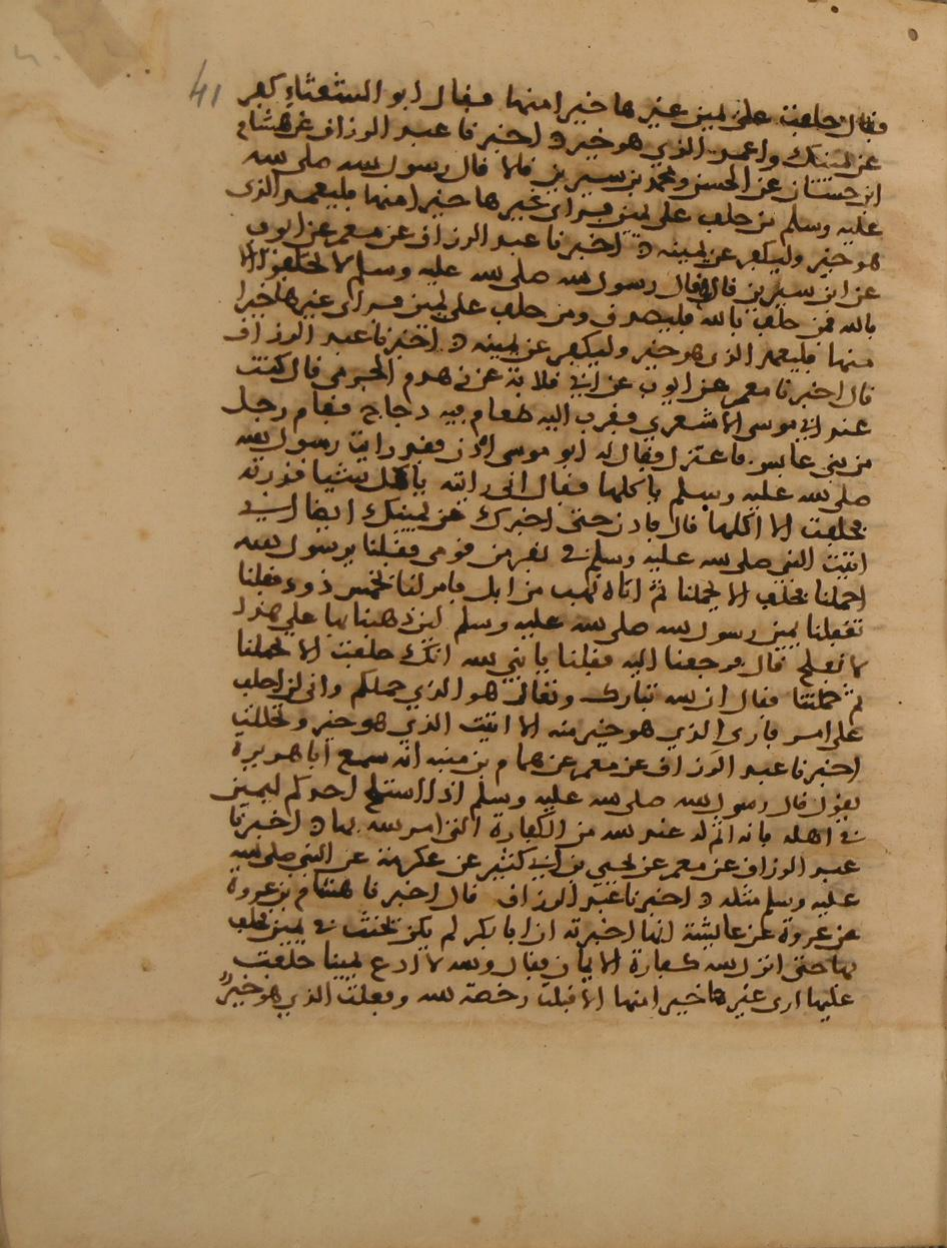 41
فقال حلفت على يمين غيرها خير امنها فقال ابو الشعثاء كفر
عن يمينك واعمد الذي هو خير ه اخبرنا عبد الرزاق عن هشام
ابن حسان عن الحسن ومحمد بن سيرين قالا قال رسول الله صلى الله
عليه وسلم من حلف على يمين فراى غيرها خيرا منها فليعمد الذى
هو خير وليكفر عن يمينه ه اخبرنا عبد الرزاق عن معمر عن ايوب
عن ابن سيرين قال قال رسول الله صلى الله عليه وسلم لا تحلفوا الا
بالله فمن حلف بالله فليصدق ومن حلف على يمين فراى غيرها خيرا
منها فليعمد الذى هو خير وليكفر عن يمينه ه اخبرنا عبد الرزاق
قال اخبرنا معمر عن ايوب عن ابي قلابة عن زهدم الجرمى قال كنت
عند ابي موسى الاشعري فقرب اليه طعام فيه دجاج فقام رجل
من بني عابس فاعتزل فقال له ابو موسى ادن فقد رايت رسول الله
صلى الله عليه وسلم ياكلها فقال انى رايته ياكل شيا قذرته
فحلفت الا اكلها قال فادن حتى اخبرك عن يمينك ايضا اني
اتيت النبي صلى الله عليه وسلم في نفر من قومى فقلنا يرسول الله
احملنا فحلف الا يحملنا ثم اتاه نهب من ابل فامر لنا بخمس ذود فقلنا
تغفلنا يمين رسول الله صلى الله عليه وسلم لين ذهبنا بها على هذا
لا نفلح قال فرجعنا اليه فقلنا يا نبي الله انك حلفت الا تحملنا
ثم حملتنا فقال ان الله تبارك وتعالى هو الذي حملكم وانى لن احلف
على امر فارى الذي هو خير منه الا اتيت الذي هو خير وتحللت
اخبرنا عبد الرزاق عن معمر عن همام بن منبه انه سمع ابا هريرة
يقول قال رسول الله صلى الله عليه وسلم اذا استلج احدكم ليمين
في اهله فانه اثم له عند الله من الكفارة التى امر الله بها ه اخبرنا
عبد الرزاق عن معمر عن يحيى بن ابي كثير عن عكرمة عن النبي صلى الله
عليه وسلم مثله ه اخبرنا عبد الرزاق قال اخبرنا هشام بن عروة
عن عروة عن عايشة انها اخبرته ان ابا بكر لم يكن يحنث في يمين يحلف
بها حتى انزل الله كفارة الايمان فقال والله لا ادع يمينا حلفت
عليها ارى غيرها خيرا منها الا قبلت رخصة الله وفعلت الذي هو خيرٌ